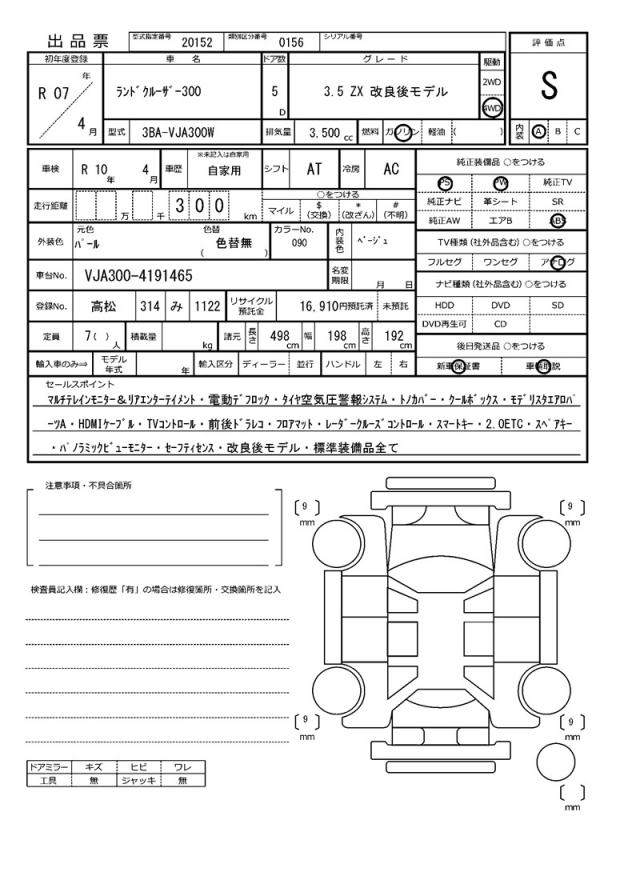 出品票 型式指定番号 20152 類別区分番号 0156 シリアル番号
評価点
S
内装 A B C
初年度登録 車名 ドア数 グレード 駆動
R 07 年 4 月 ランドクルーザー300 5 D 3.5 ZX 改良後モデル 2WD 4WD
型式 3BA-VJA300W 排気量 3.500 cc 燃料 ガソリン 軽油 ( )
車検 R 10 年 4 月 車歴 ※未記入は自家用 自家用 シフト AT 冷房 AC
走行距離 万 千 3 0 0 km ○をつける
マイル $ (交換) * (改ざん) # (不明)
外装色 元色 パール 色替 色替無 ( ) カラーNo. 090 内装色 ベージュ
車台No. VJA300-4191465 名変期限 月 日
登録No. 高松 314 み 1122 リサイクル預託金 16,910円預託済 未預託
定員 7( ) 人 積載量 kg 諸元 長さ 498 cm 幅 198 cm 高さ 192 cm
輸入車のみ⇒ モデル年式 年 輸入区分 ディーラー 並行 ハンドル 左 右
純正装備品 ○をつける
PS PW 純正TV
純正ナビ 革シート SR
純正AW エアB ABS
TV種類 (社外品含む) ○をつける
フルセグ ワンセグ アナログ
ナビ種類 (社外品含む) ○をつける
HDD DVD SD
DVD再生可 CD
後日発送品 ○をつける
新車保証書 車輌取説
セールスポイント
マルチテレインモニター&リアエンターテイメント・電動デフロック・タイヤ空気圧警報システム・トノカバー・クールボックス・モデリスタエアロパ
ーツA・HDMIケーブル・TVコントロール・前後ドラレコ・フロアマット・レーダークルーズコントロール・スマートキー・2.0ETC・スペアキー
・パノラミックビューモニター・セーフティセンス・改良後モデル・標準装備品全て
注意事項・不具合箇所
検査員記入欄：修復歴「有」の場合は修復箇所・交換箇所を記入
ドアミラー キズ ヒビ ワレ
工具 無 ジャッキ 無
[ 9 ] mm
[ 9 ] mm
[ 9 ] mm
[ 9 ] mm
[ ] mm